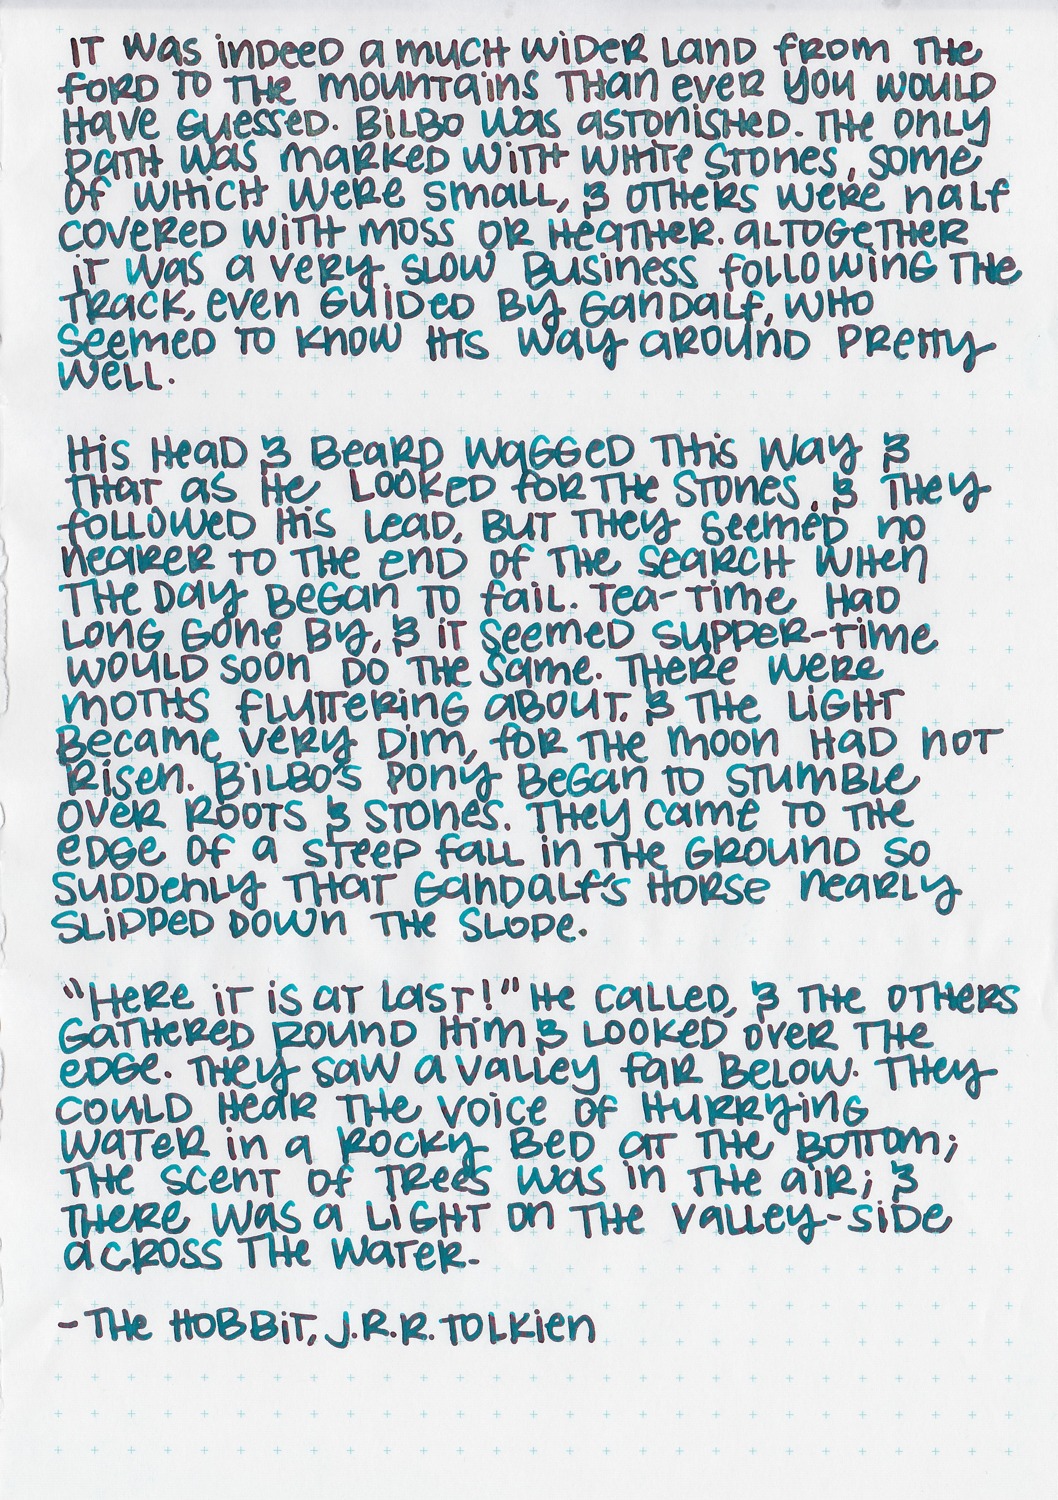 It was indeed a much wider land from the
ford to the mountains than ever you would
have guessed. Bilbo was astonished. The only
path was marked with white stones, some
of which were small, & others were half
covered with moss or heather. Altogether
it was a very slow business following the
track, even guided by Gandalf, who
seemed to know his way around pretty
well.
His head & beard wagged this way &
that as he looked for the stones, & they
followed his lead, but they seemed no
nearer to the end of the search when
the day began to fail. Tea-time had
long gone by, & it seemed supper-time
would soon do the same. There were
moths fluttering about, & the light
became very dim, for the moon had not
risen. Bilbo's pony began to stumble
over roots & stones. They came to the
edge of a steep fall in the ground so
suddenly that Gandalf's horse nearly
slipped down the slope.
"Here it is at last!" he called, & the others
gathered round him & looked over the
edge. They saw a valley far below. They
could hear the voice of hurrying
water in a rocky bed at the bottom;
the scent of trees was in the air; &
there was a light on the valley-side
across the water.
- The Hobbit, J.R.R. Tolkien